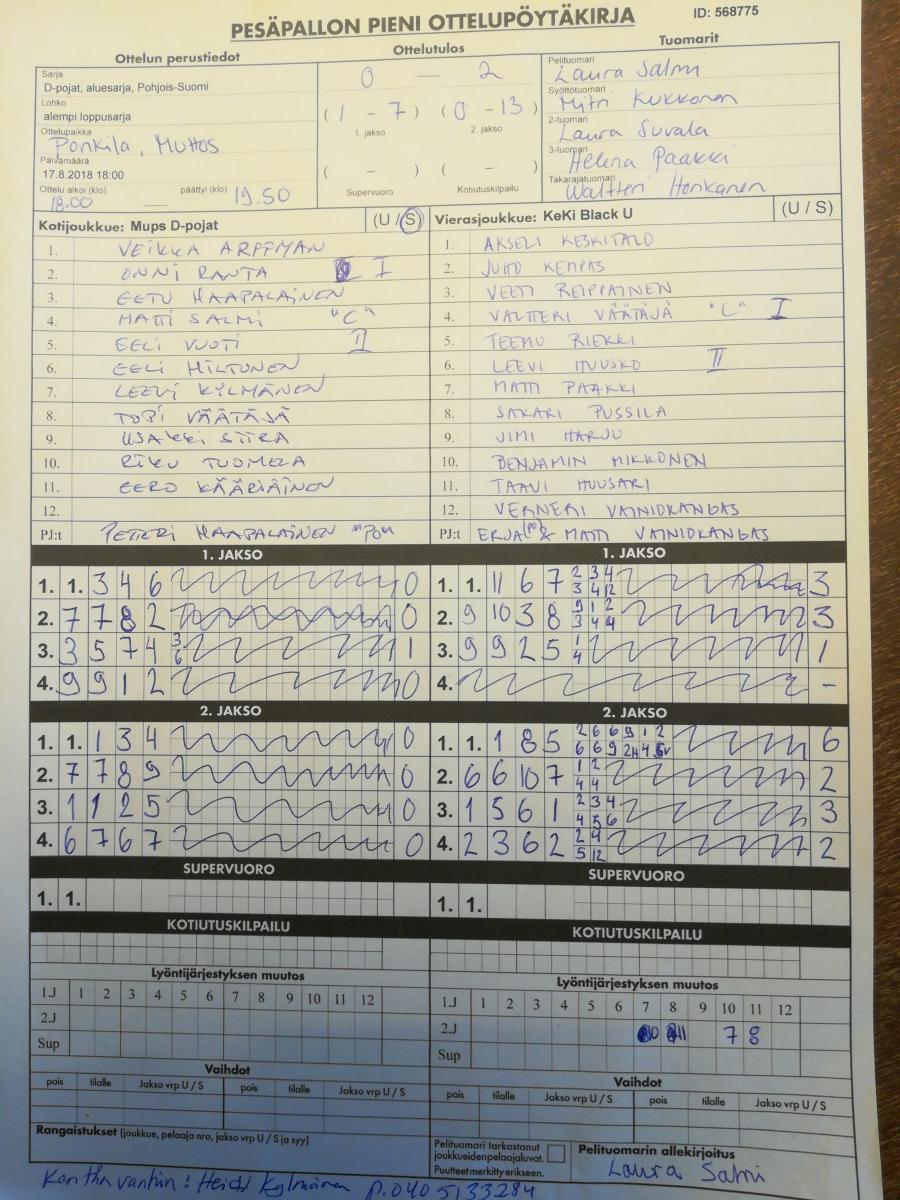 PESÄPALLON PIENI OTTELUPÖYTÄKIRJA
ID: 568775
Ottelun perustiedot
Sarja
D-pojat, aluesarja, Pohjois-Suomi
Lohko
alempi loppusarja
Ottelupaikka
Ponkila, Muhos
Päivämäärä
17.8.2018 18:00
Ottelu alkoi (klo) päättyi (klo)
18.00 19.50
Ottelutulos
0 — 2
(1 - 7) (0 - 13)
1. jakso 2. jakso
( - ) ( - )
Supervuoro Kotiutuskilpailu
Tuomarit
Pelituomari
Laura Salmi
Syöttötuomari
Kukkonen
2-tuomari
Laura Suvala
3-tuomari
Helena Paakki
Takarajatuomari
Waltteri Honkanen
Kotijoukkue: Mups D-pojat (U / S)
1. VEIKKA ARFFMAN
2. ONNI RANTA I
3. EETU HAAPALAINEN
4. MATTI SALMI "C"
5. EELI VUOTI II
6. EELI HILTUNEN
7. LEEVI KYLMÄNEN
8. TOPI VÄÄTÄJÄ
9. SIIRA
10. RIKU TUOMELA
11. EERO KÄÄRIÄINEN
12.
PJ:t PETTERI HAAPALAINEN "POM
Vierasjoukkue: KeKi Black U (U / S)
1. AKSELI KESKITALO
2. JUHO KEMPAS
3. VEETI REIPPAINEN
4. VALTTERI VÄÄTÄJÄ "C" I
5. TEEMU RIEKKI
6. LEEVI HUUSKO II
7. MATTI PAAKKI
8. SAKARI PUSSILA
9. JIMI HARJU
10. BENJAMIN MIKKONEN
11. TAAVI HUUSARI
12. VERNERI VAINIOKANGAS
PJ:t ERJA (PO) & MATTI VAINIOKANGAS
1. JAKSO
1. 1. 3 4 6 0
2. 7 7 8 2 0
3. 3 5 7 4 3 6 1
4. 9 9 1 2 0
1. JAKSO
1. 1. 11 6 7 2 3 4 3 4 12 3
2. 9 10 3 8 9 1 2 3 4 4 3
3. 9 9 2 5 1 4 1
4. -
2. JAKSO
1. 1. 1 3 4 0
2. 7 7 8 9 0
3. 1 1 2 5 0
4. 6 7 6 7 0
2. JAKSO
1. 1. 1 8 5 2 6 6 9 1 2 6 6 9 6
2. 6 6 10 7 1 2 4 4 2
3. 1 5 6 1 2 3 4 4 5 6 3
4. 2 3 6 2 2 4 5 12 2
SUPERVUORO
1. 1.
SUPERVUORO
1. 1.
KOTIUTUSKILPAILU
KOTIUTUSKILPAILU
Lyöntijärjestyksen muutos
1.J 1 2 3 4 5 6 7 8 9 10 11 12
2.J
Sup
Lyöntijärjestyksen muutos
1.J 1 2 3 4 5 6 7 8 9 10 11 12
2.J 10 11 7 8
Sup
Vaihdot
pois tilalle Jakso vrp U / S pois tilalle Jakso vrp U / S
Vaihdot
pois tilalle Jakso vrp U / S pois tilalle Jakso vrp U / S
Rangaistukset (joukkue, pelaaja nro, jakso vrp U / S ja syy)
Pelituomari tarkastanut
joukkueiden pelaajaluvat.
Puutteet merkitty erikseen.
Pelituomarin allekirjoitus
Laura Salmi
Kentän vanhin: Heidi Kylmänen p.040 5133284